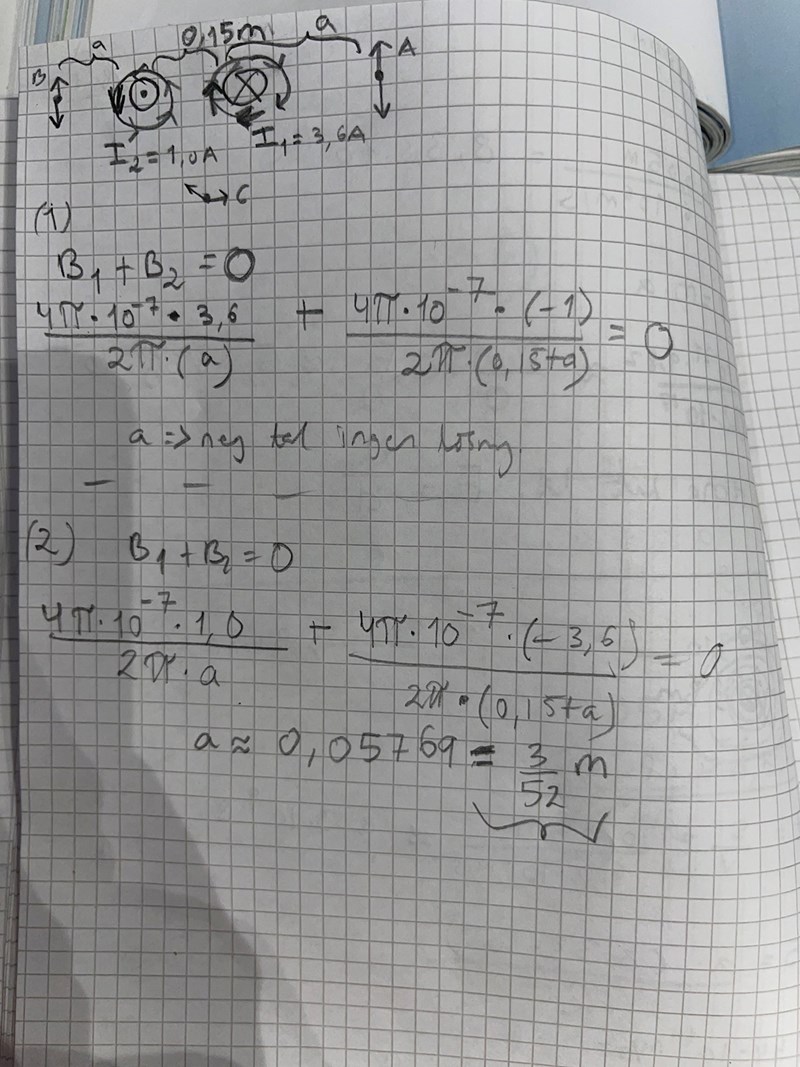 a 0,15m a
B A
I₂=1,0A I₁=3,6A
C
(1)
B₁+B₂=0
4π·10⁻⁷·3,6 / 2π·(a) + 4π·10⁻⁷·(-1) / 2π·(0,15+a) = 0
a => neg tal ingen lösning.
(2) B₁+B₂=0
4π·10⁻⁷·1,0 / 2π·a + 4π·10⁻⁷·(-3,6) / 2π·(0,15+a) = 0
a ≈ 0,05769 = 3/52 m